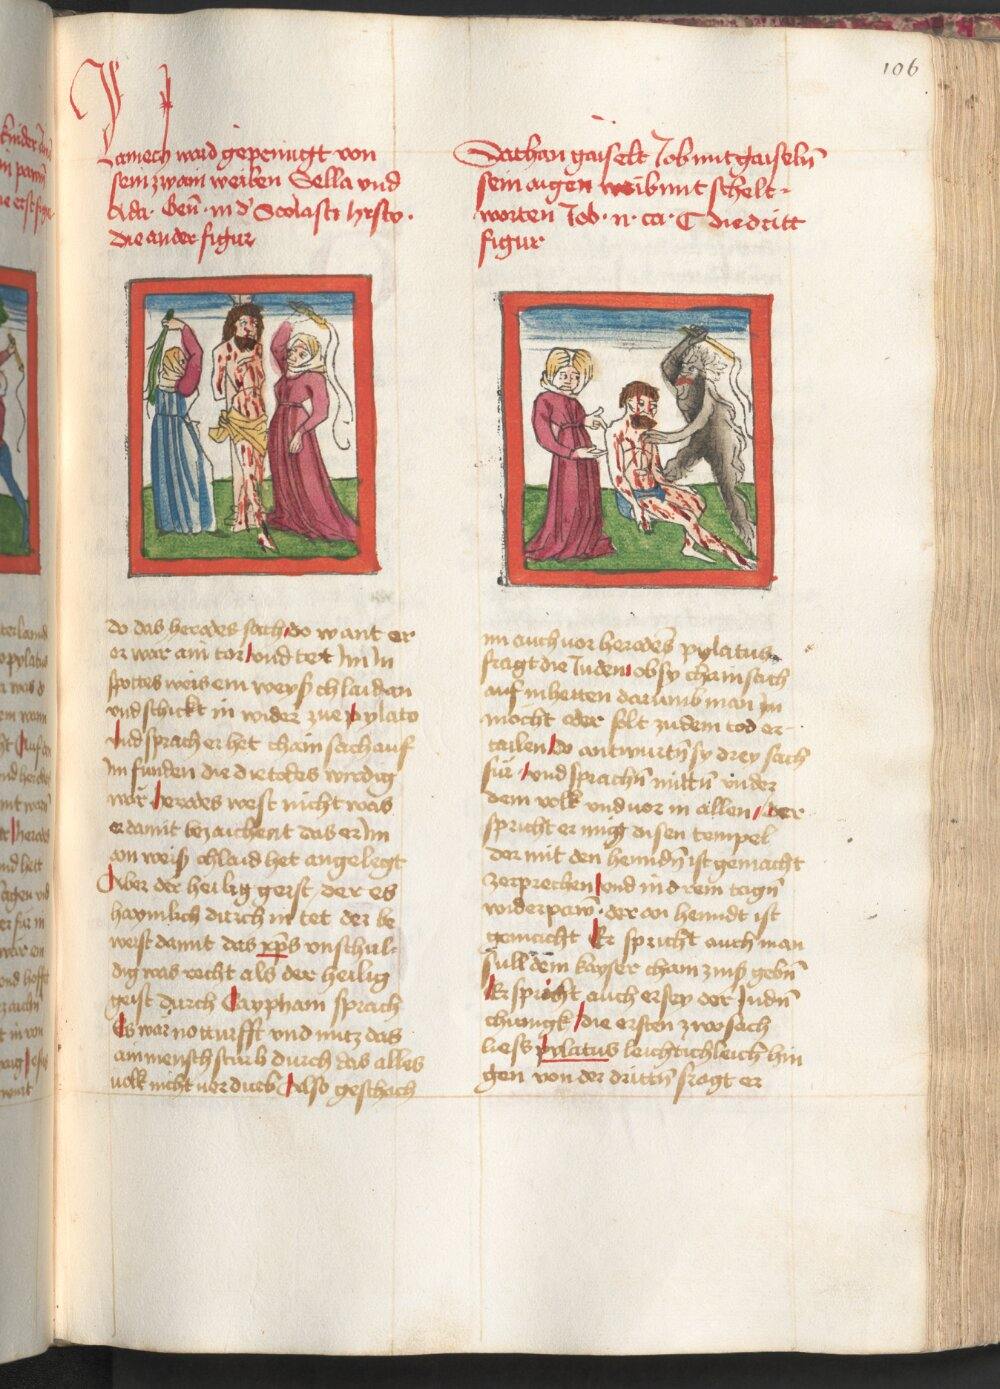 106
Lamech ward gepeinigt von
sein zwain weiben Sella vnd
Ada. Gen. in d' Scolasti hysto.
die ander figur
Sathan gaiselt Job mit gaiseln
sein aigen weib mit schelt-
worten Job. ii. ca. C die dritt
figur
do das herodes sach do want er
er war ain tor vnd tet Im In
spottes weis ein weyss chlaid an
vnd schickt in wider zue pylato
vnd sprach er het chain sach auf
Im funden die die todes wirdig
wär herodes west nicht was
er damit bezaichent das er Im
ain weiss chlaid het angelegt
Aber der heilig geist der es
haymlich durch in tet der be
weist damit das xps vnschul-
dig was recht als der heilig
geist durch Caypham sprach
Es wär notturfft vnd nutz das
ain mensch sturb durch das alles
volk nicht verdurb Also geschach
im auch vor herodes pylatus
fragt die Juden ob sy chain sach
auf in hetten darumb man im
mocht oder solt zu dem tod er-
tailen do antwurtn sy drey sach
für vnd sprachn mittn vnder
dem volk vnd vor in allen, der
spricht er mug disen tempel
der mit den henndn ist gemacht
zerprechen vnd in drein tagn
widerpawn. der an henndt ist
gemacht Er spricht auch man
sull dem kayser chain zins gebn
Er spricht auch er sey der Judn
chunigk die ersten zwo sach
liess pylatus leichtichleich hin
gen von der drittn fragt er